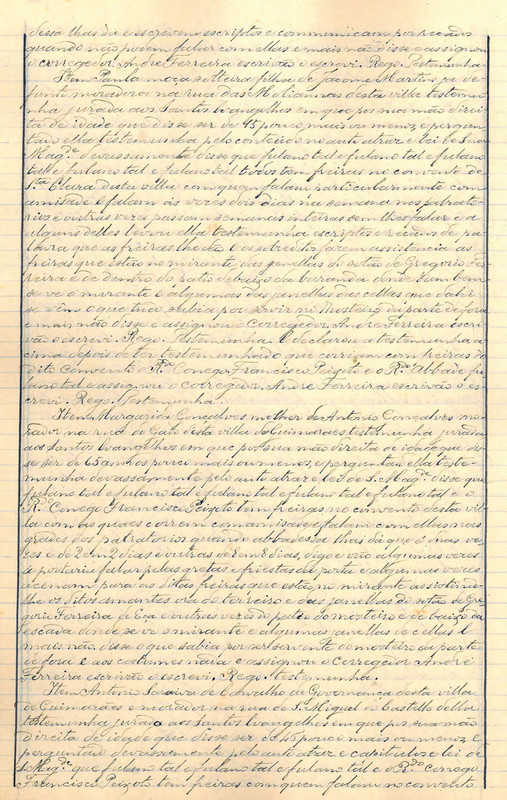 dessa lhas da e escrevem escriptos e communicam por recados
quando não podem fular com ellas e mais não disse e assignou
o corregedor. André Ferreira escrivão o escrevi. Rego. Testemunha
Item Paula moça solteira filha de Jacome Martins ja de-
funto moradora na rua das Molianas desta villa testemu-
nha jurada aos Santos Evangelhos em que poz sua mão direi-
ta de idade que disse ser de 45 pouco mais ou menos, e pergun-
tado ella testemunha pelo conteudo no auto atraz e lei de Sua
Mag.de devassamente disse que fulano tal e fulano tal e fulano
tal e fulano tal e fulano tal todos tem freiras no convento de
S.ta Clara desta villa com quem falam particularmente com
amisade e falam ás vezes dois dias na semana nos palrato-
rios e outras vezes passam semanas inteiras sem lhes falar e a
alguns delles levou ella testemunha escriptos e recados de pa-
lavra que as freiras lhe dão e os sobreditos fazem assistencia ás
freiras que estão no mirante das janellas do sotão de Gregorio Fer-
reira e de dentro do patio debaixo da varanda donde tambem
se vê o mirante e algumas das janellas das cellas que dahi
se vêem o que tudo sabia por servir no Mosteiro da parte de fora
e mais não disse e assignou o Corregedor. André Ferreira Escri-
vão o escrevi. Rego. Testemunha. E declarou a testemunha a-
cima depois de ter testemunhado que corriam com freiras do
dito Convento o R.do Conego Francisco Peixoto e o R.do Abbade fu-
lano tal e assignou o corregedor. André Ferreira escrivão o es-
crevi. Rego. Testemunha.
Item Margarida Gonçalves mulher de Antonio Gonçalves mo-
rador na rua de Gato desta villa de Guimarães testemunha jurada
aos Santos Evangelhos em que poz sua mão direita de idade que dis-
se ser de 65 annos pouco mais ou menos, e perguntada ella teste-
munha devassamente pelo auto atraz e lei de S. Mag.de disse que
fulano tal e fulano tal e fulano tal e fulano tal e fulano tal e o
R.do Conego Francisco Peixoto tem freiras no convento desta vil-
la com as quaes correm com amisade e falam com ellas nas
grades dos palratorios quando a abbadessa lhas dá que é duas ve-
zes e de 2 em 2 dias e outras de 8 em 8 dias, digo e vão algumas vezes
á portaria fular pelas gretas e friestas da porta e algumas vezes
acenam para as ditas freiras que estão no mirante assistindo-
lhe os ditos amantes ora do terreiro e das janellas do sotão de Gre-
gorio Ferreira de Eça e outras vezes do pateo do mosteiro e de baixo da
escada donde se vê o mirante e algumas janellas de cellas. E
mais não disse o que sabia por ser servente do mosteiro da parte
de fora e aos costumes nada e assignou o Corregedor André
Ferreira escrivão o escrevi. Rego. Testemunha.
Item Antonio Saraiva de Carvalho da Governança desta villa
de Guimarães e morador na rua de S. Miguel do Castello della
testemunha jurado aos Santos Evangelhos em que poz sua mão
direita de idade que disse ser de 45 pouco mais ou menos. E
perguntado devassamente pelo auto atraz e capitulos e lei de
S. Mag.de que fulano tal e fulano tal e fulano tal e o R.do Conego
Francisco Peixoto tem freiras com quem falam no convento